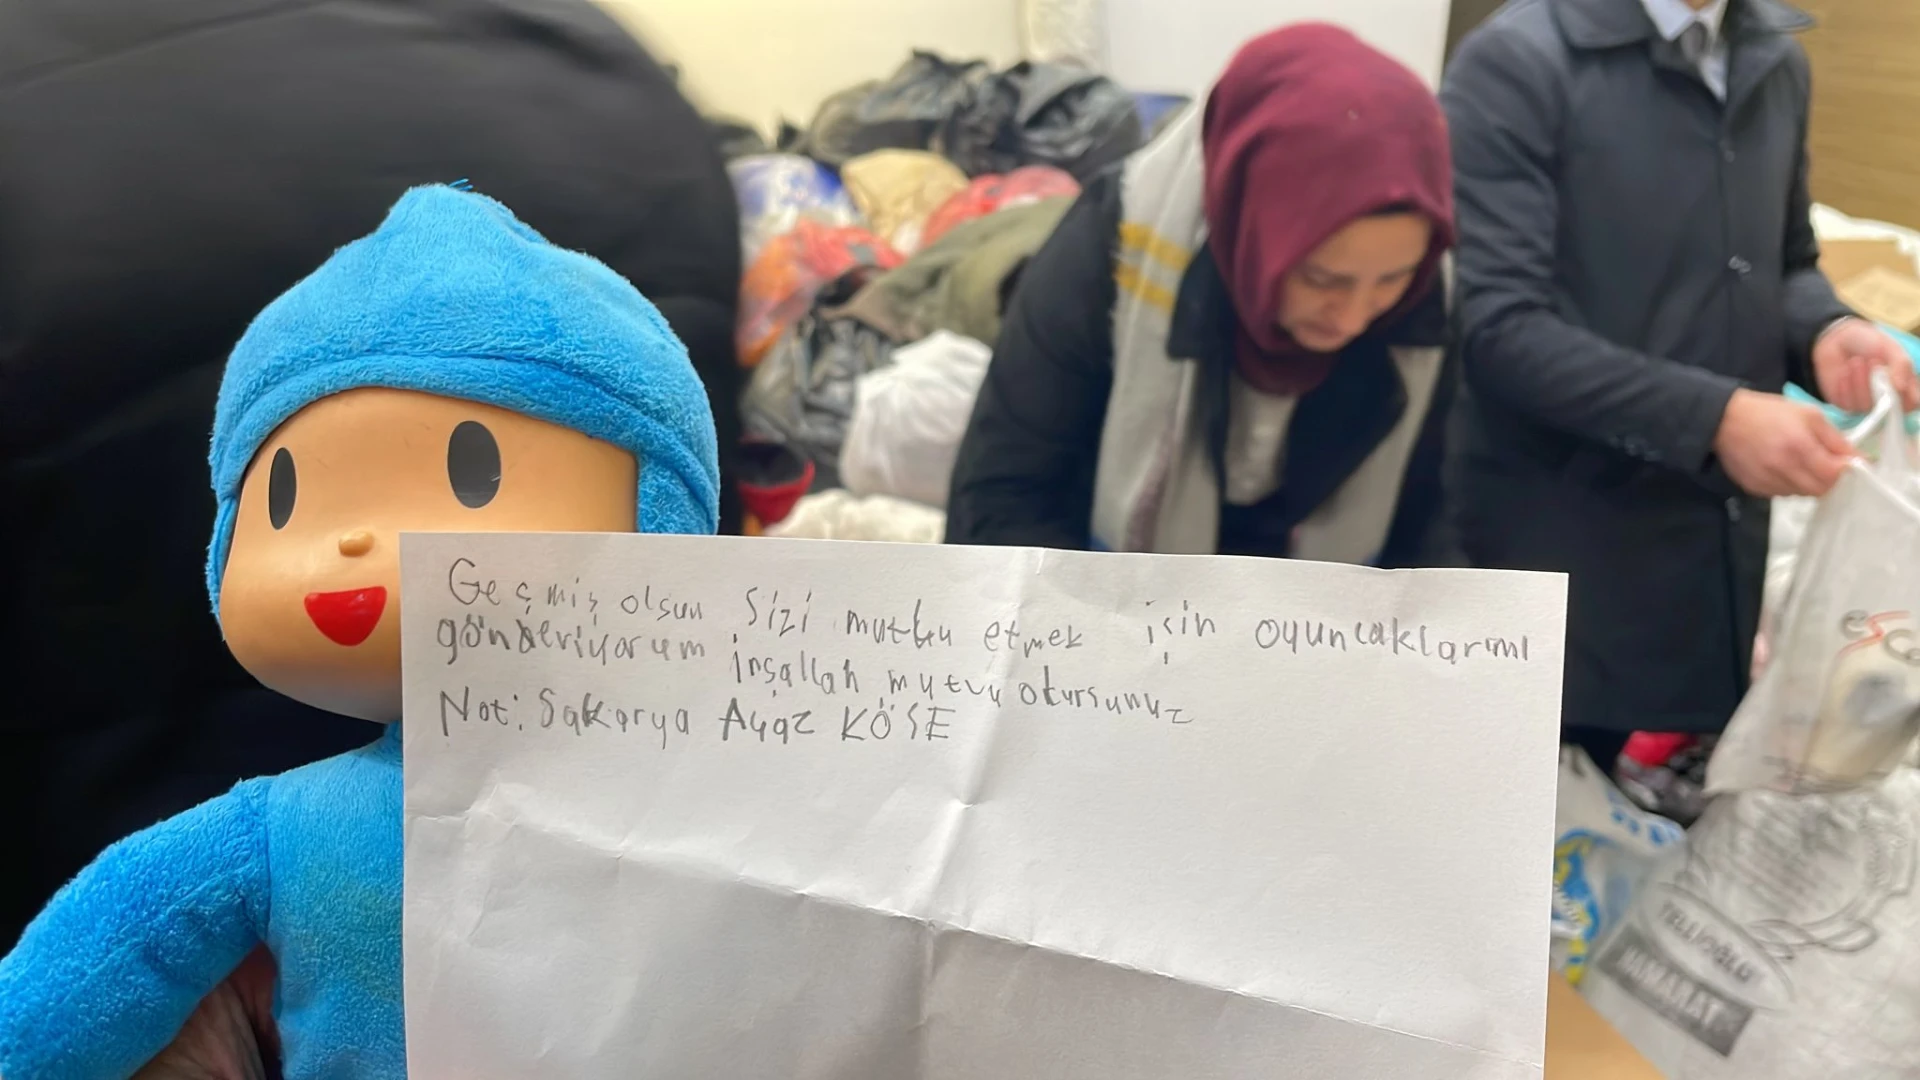 Geçmiş olsun Sizi mutlu etmek için oyuncaklarımı
gönderiyorum inşallah mutlu olursunuz
Not: Sakarya Ayaz KÖSE
YELLİOĞLU